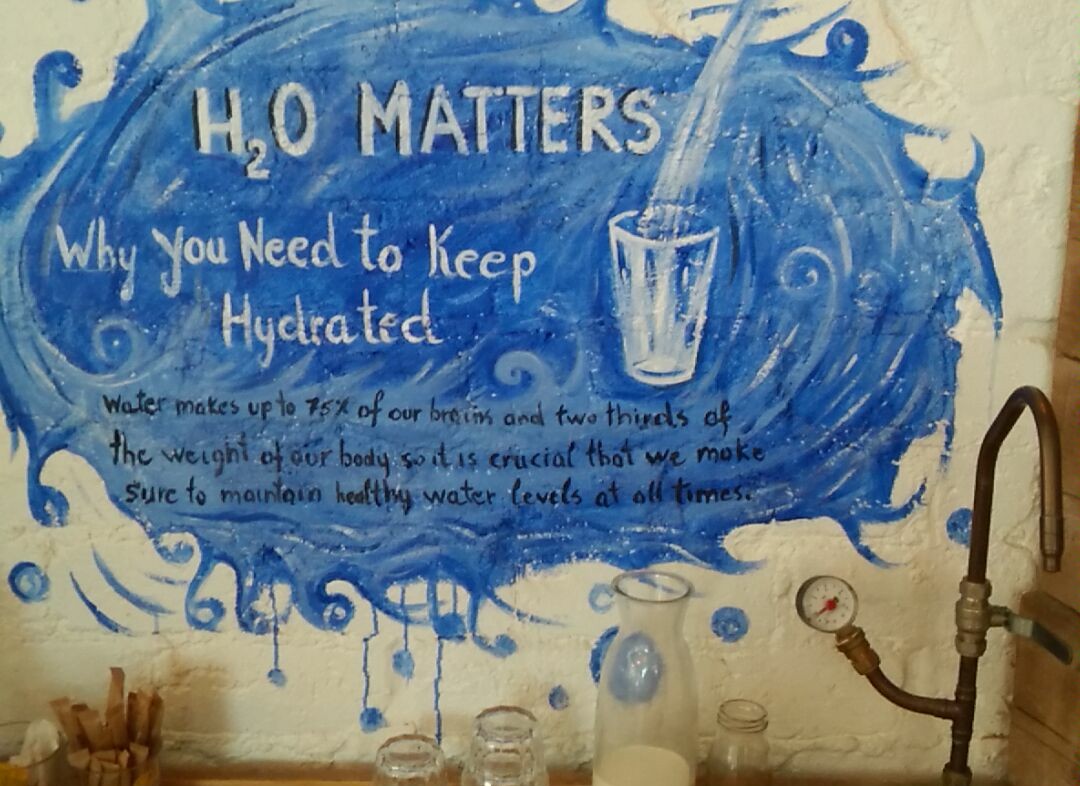 H₂O MATTERS
Why you Need to Keep
Hydrated
Water makes up to 75% of our brains and two thirds of
the weight of our body so it is crucial that we make
sure to maintain healthy water levels at all times.